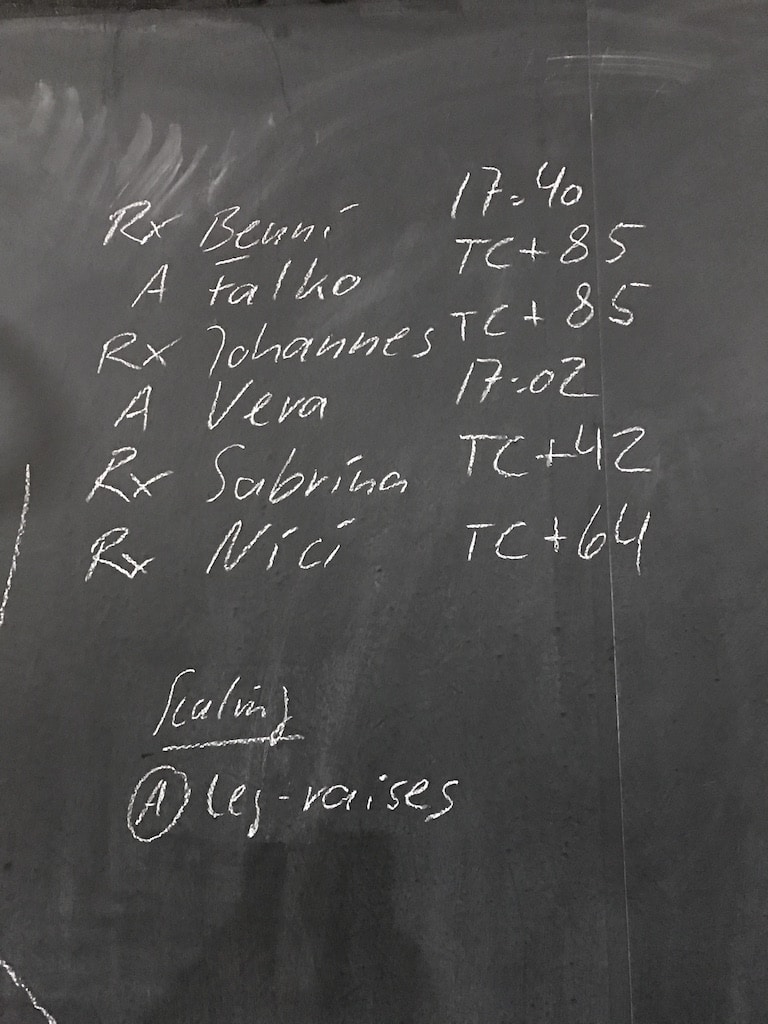 Rx Benni 17:40
A Falko TC+85
Rx Johannes TC+85
A Vera 17:02
Rx Sabrina TC+42
Rx Nici TC+64
Scaling
A Leg-raises